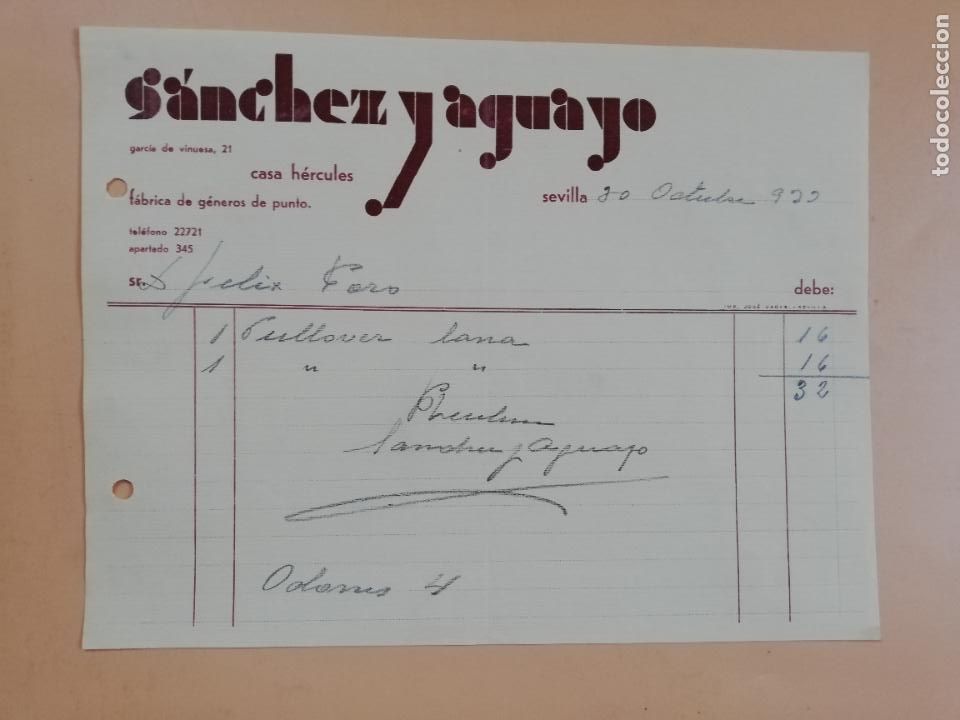 sánchez y aguayo
garcía de vinuesa, 21
casa hércules
fábrica de géneros de punto.
sevilla 20 Octubre 933
teléfono 22721
apartado 345
sr. D Felix Toro debe:
1 Pullover lana 16
1 " " 16
32
Sanchez y Aguayo
4
todocoleccion